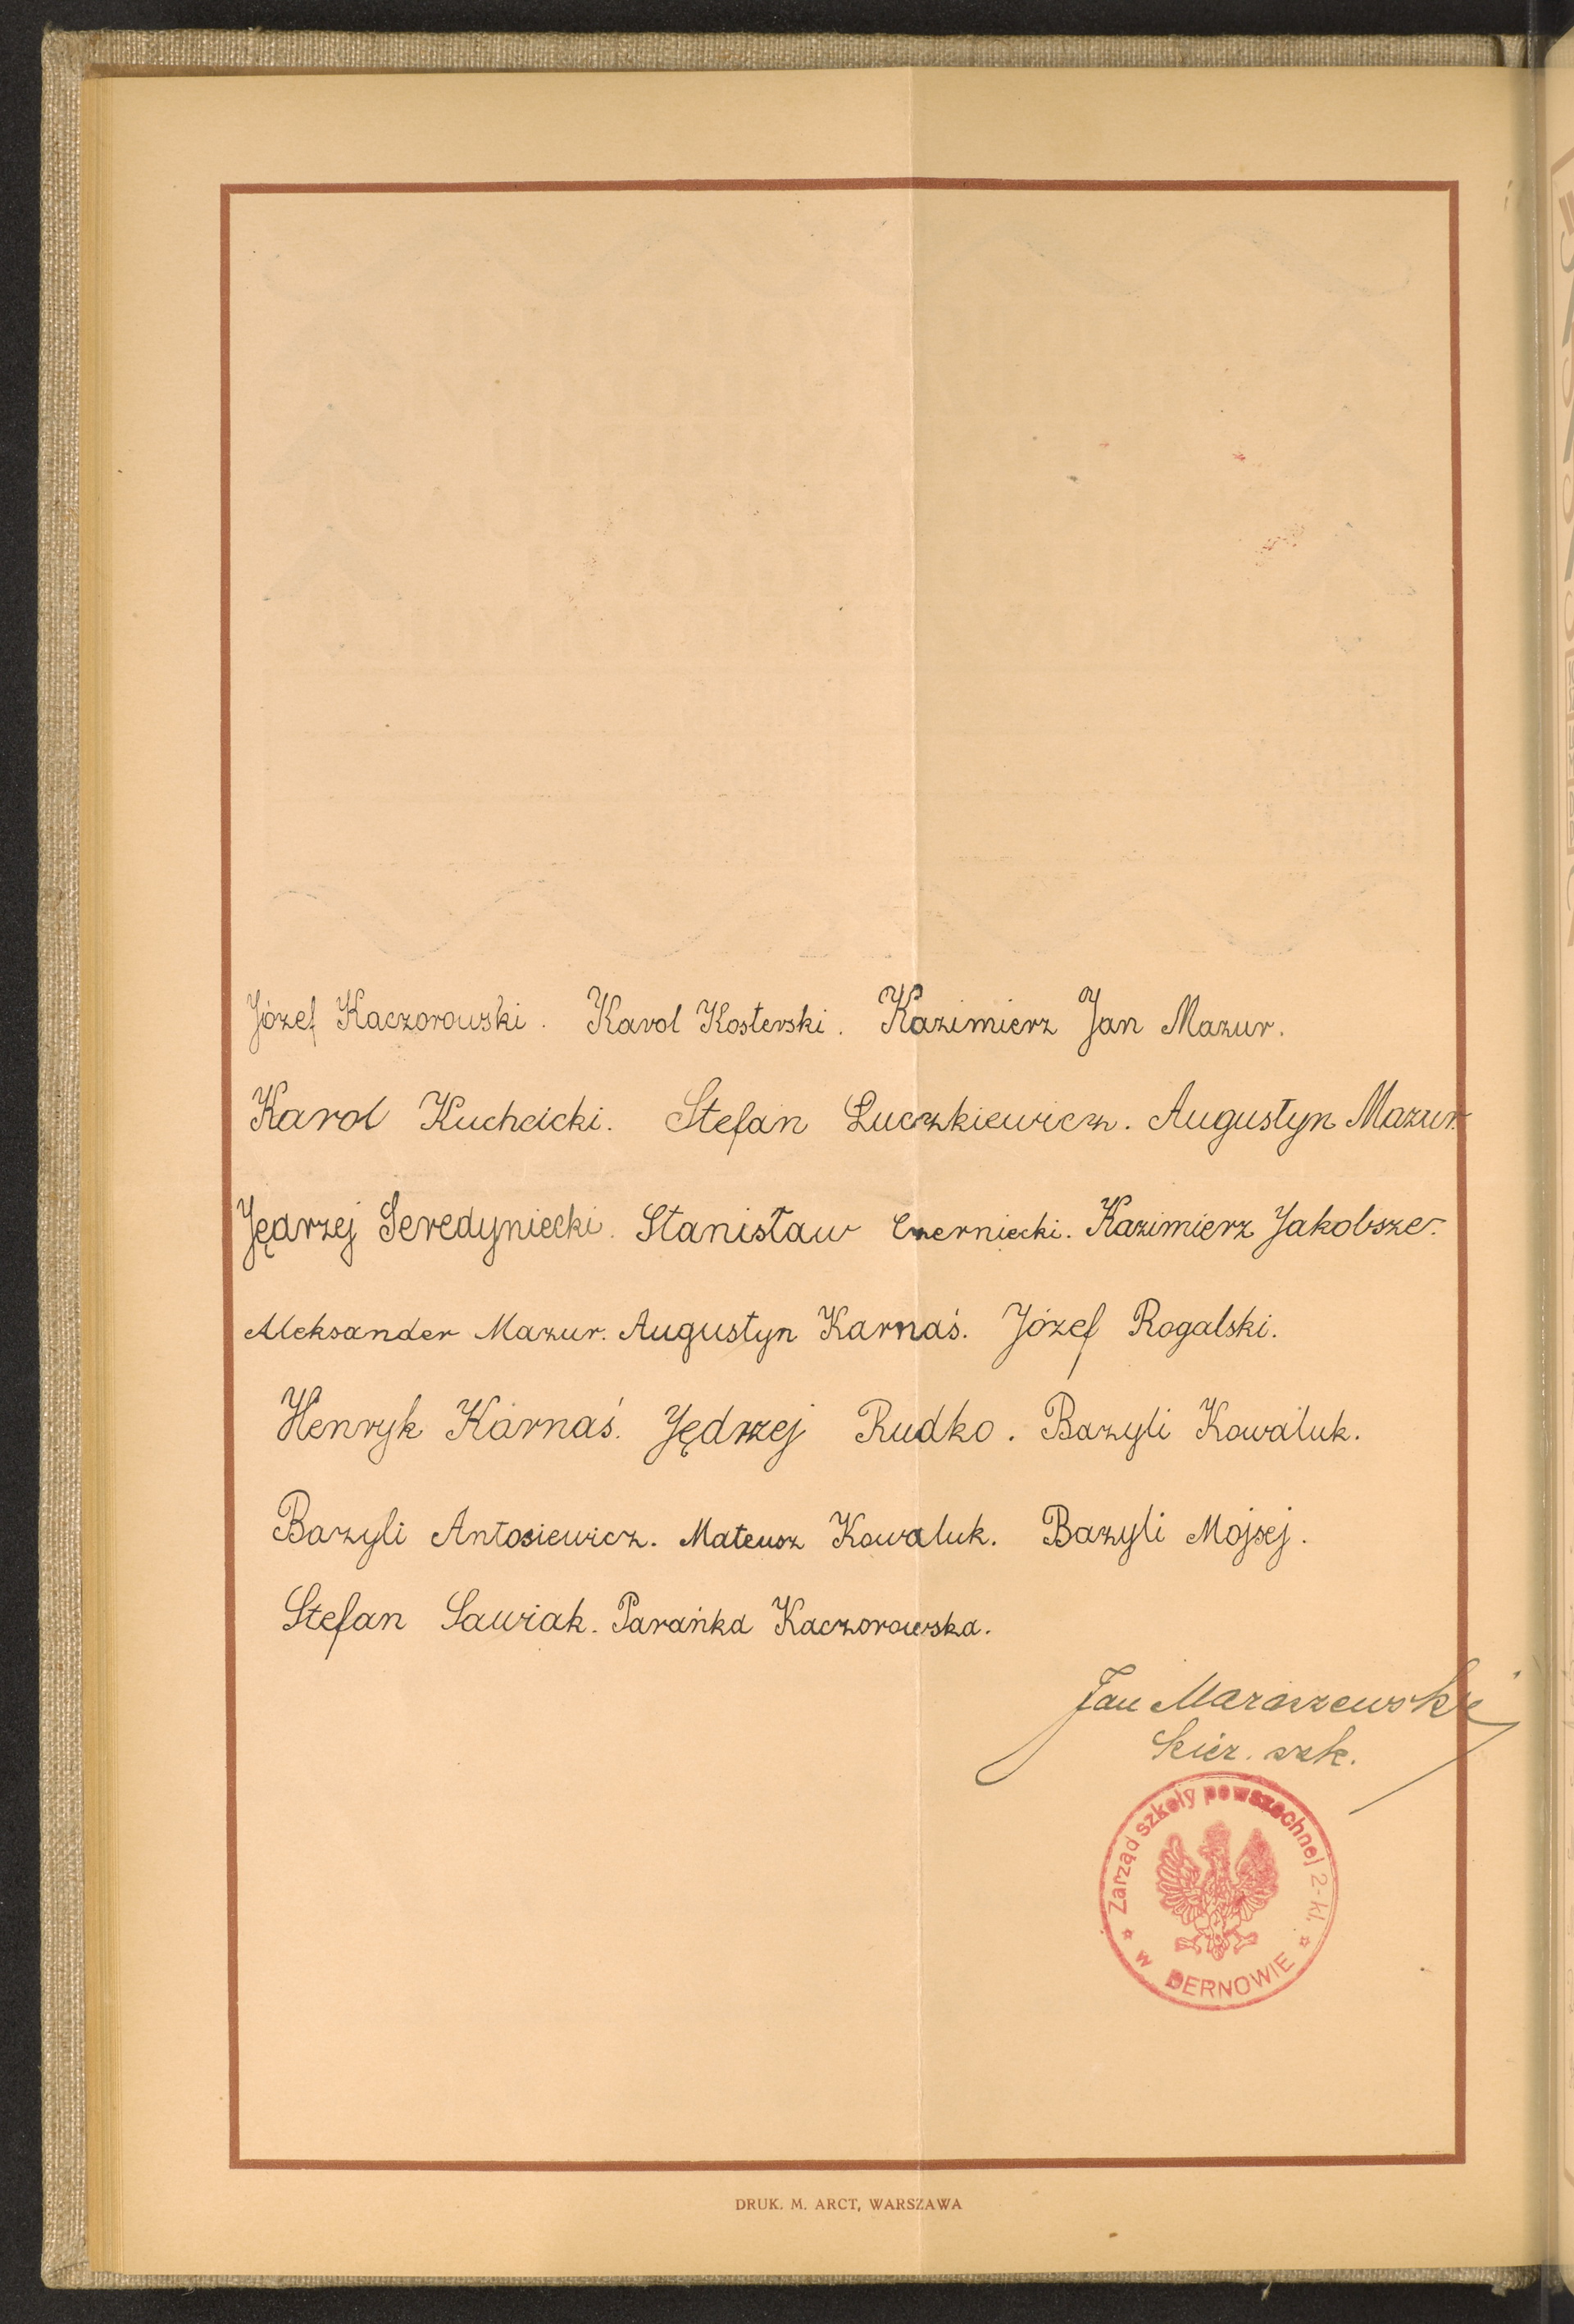 Józef Kaczorowski. Karol Kosterski. Kazimierz Jan Mazur.
Karol Kuchcicki. Stefan Łuczkiewicz. Augustyn Mazur.
Jędrzej Seredyniecki. Stanisław Czerniecki. Kazimierz Jakobsze.
Aleksander Mazur. Augustyn Karnaś. Józef Rogalski.
Henryk Karnaś. Jędrzej Rudko. Bazyli Kowaluk.
Bazyli Antosiewicz. Mateusz Kowaluk. Bazyli Mojsej.
Stefan Sawiak. Parańka Kaczorowska.
Jan Maraszewski
kier. szk.
Zarząd szkoły powszechnej 2-kl.
w DERNOWIE
DRUK. M. ARCT, WARSZAWA